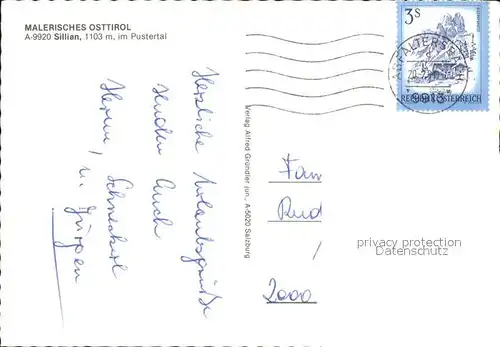 MALERISCHES OSTTIROL
A-9920 Sillian, 1103 m, im Pustertal
3 S
REPUBLIK ÖSTERREICH
9913
Herzliche Urlaubsgrüße
senden Euch
Hermi,
u. Jürgen
Verlag Alfred Gründler jun., A-5020 Salzburg
Fam
Rud
/
2000
privacy protection
Datenschutz